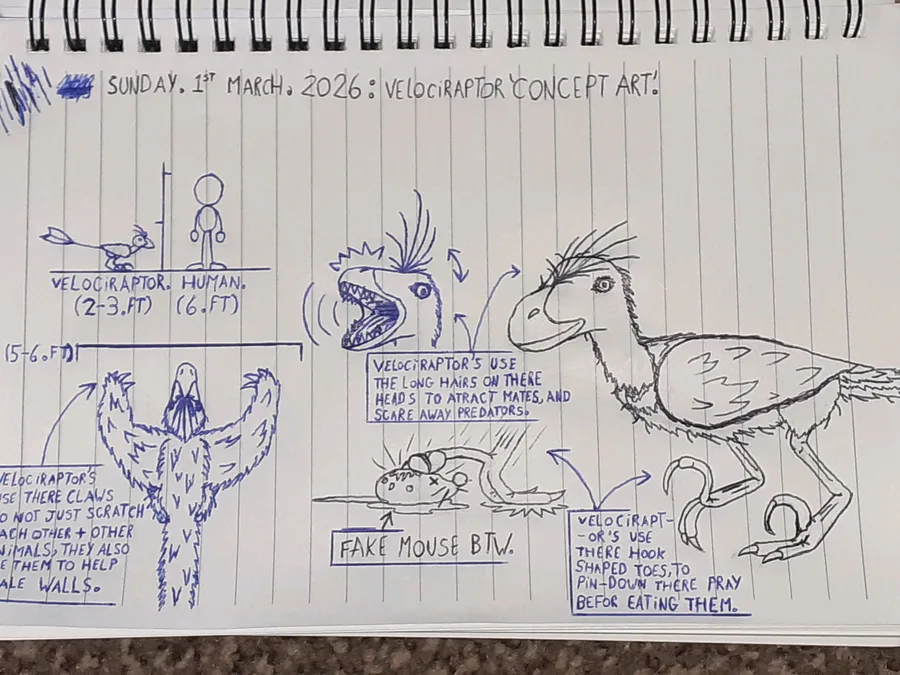 SUNDAY. 1ST MARCH. 2026: VELOCIRAPTOR 'CONCEPT ART'.
VELOCIRAPTOR. HUMAN.
(2-3.FT) (6.FT)
(5-6.FT)
VELOCIRAPTOR'S USE
THE LONG HAIRS ON THERE
HEADS TO ATRACT MATES, AND
SCARE AWAY PREDATORS.
VELOCIRAPTOR'S
USE THERE CLAWS
TO NOT JUST SCRATCH
EACH OTHER + OTHER
ANIMALS, THEY ALSO
USE THEM TO HELP
WALLS.
FAKE MOUSE BTW.
VELOCIRAPT-
-OR'S USE
THERE HOOK
SHAPED TOES, TO
PIN-DOWN THERE PRAY
BEFOR EATING THEM.